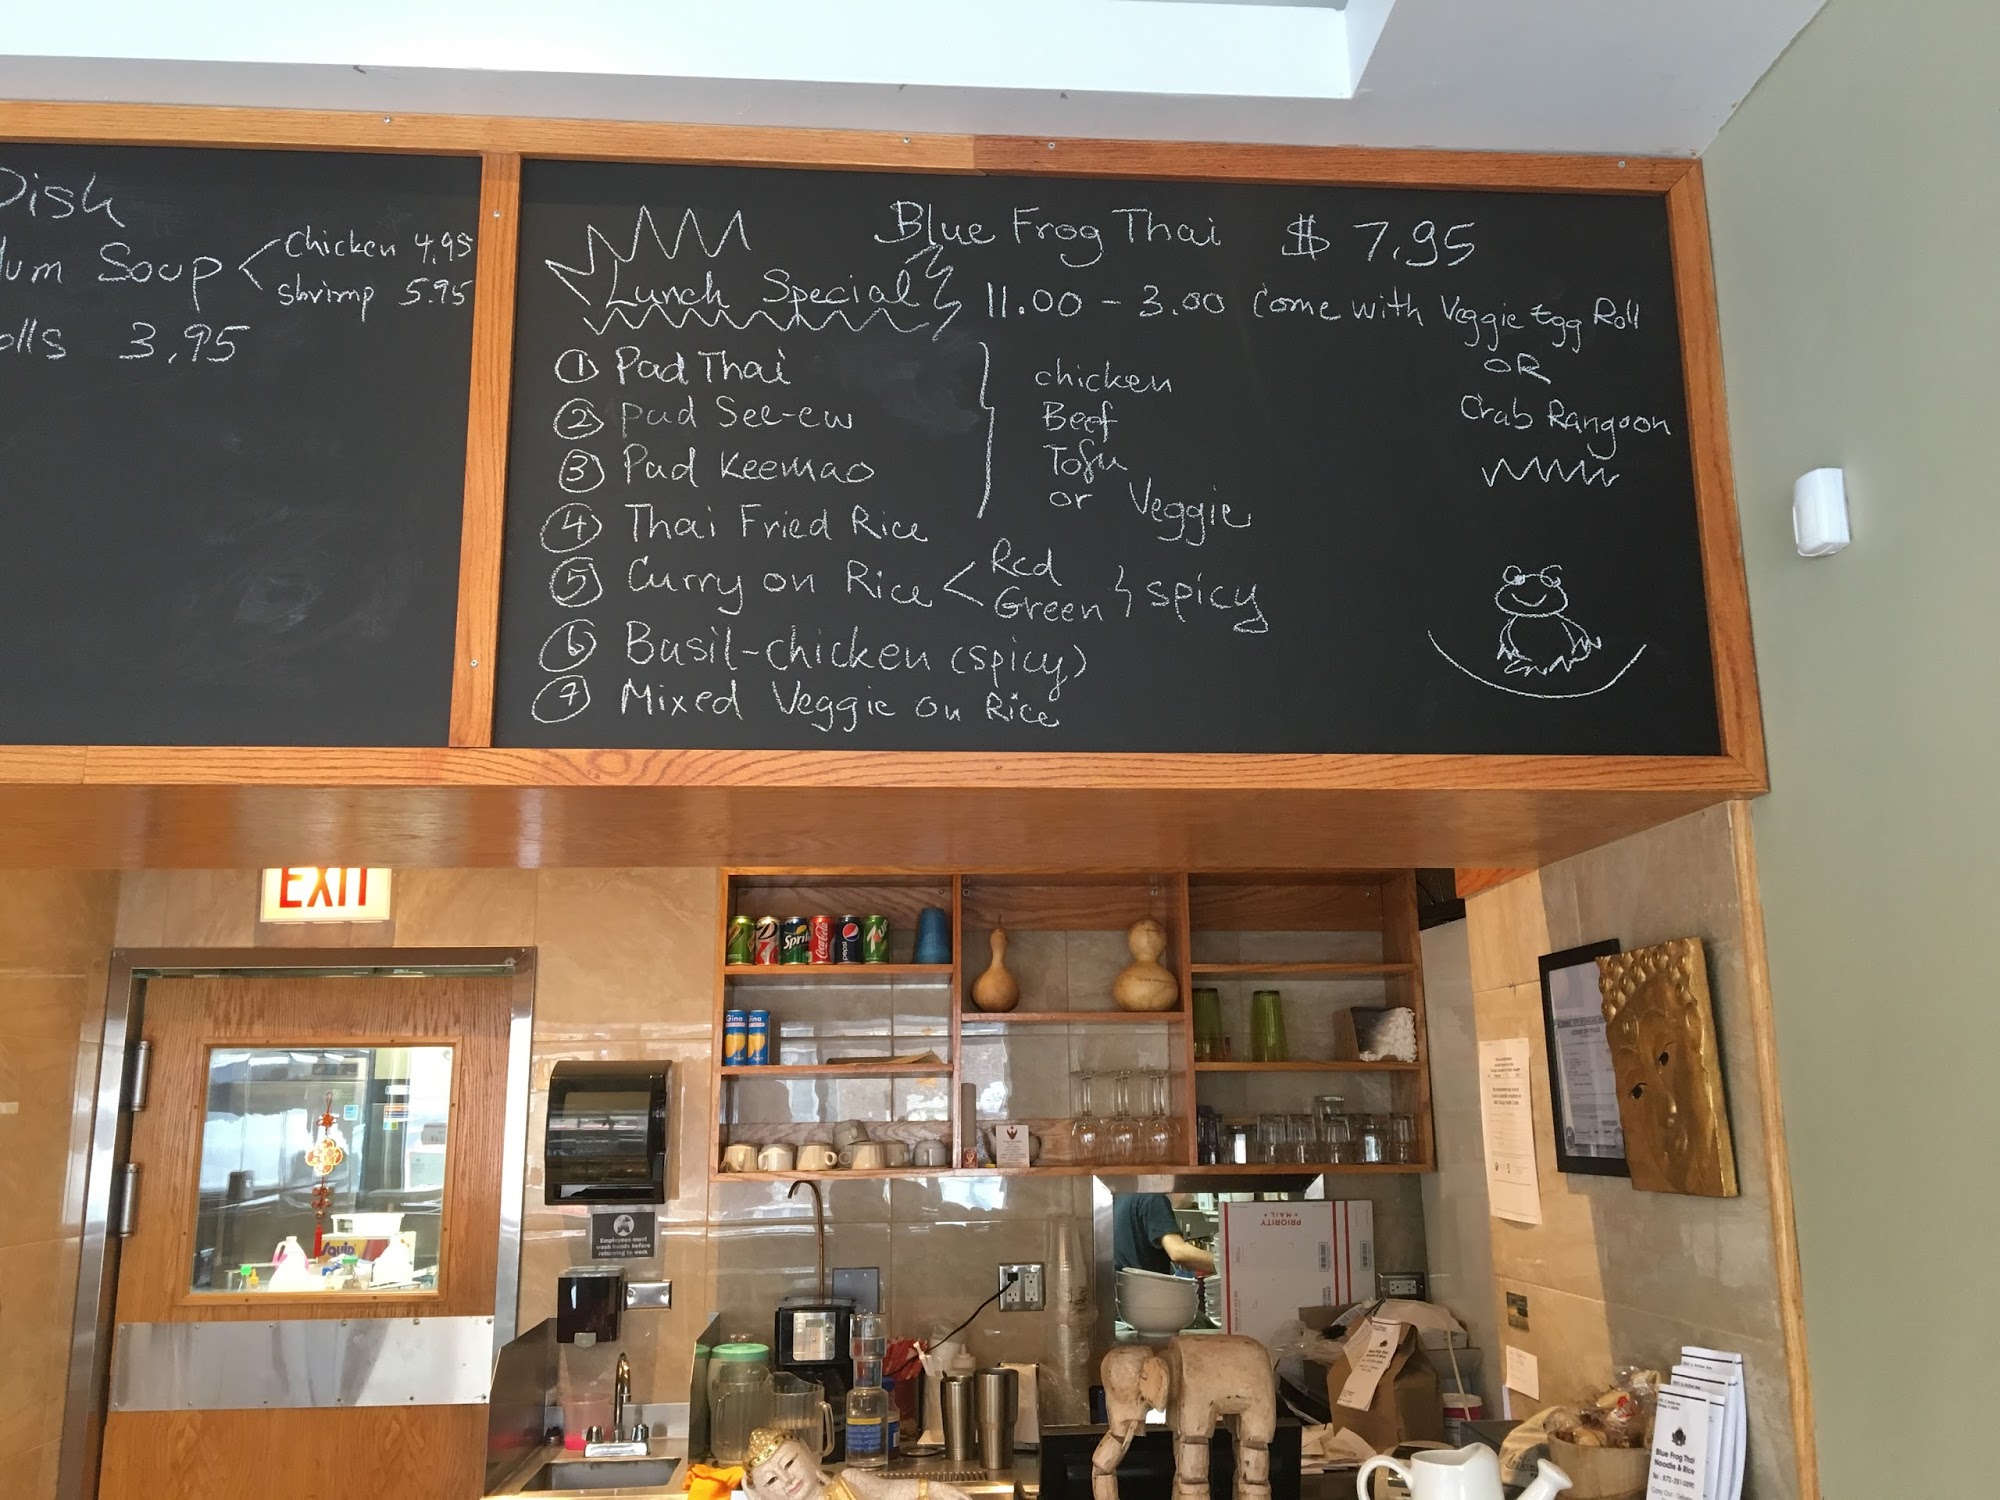 Dish
Soup
Chicken 4,95
shrimp 5.95
3,95
Blue Frog Thai $ 7,95
Lunch Special 11.00 - 3.00 Come with Veggie Egg Roll
OR
Crab Rangoon
① Pad Thai
② Pad See-ew
③ Pad Keemao
④ Thai Fried Rice
chicken
Beef
Tofu
or Veggie
⑤ Curry on Rice
Red
Green
spicy
⑥ Basil-chicken (spicy)
⑦ Mixed Veggie on Rice
EXIT
Sprite
Coca-Cola
pepsi
Gina
Gina
Employees must
wash hands before
returning to work
PRIORITY
MAIL
Blue Frog Thai
Noodle & Rice